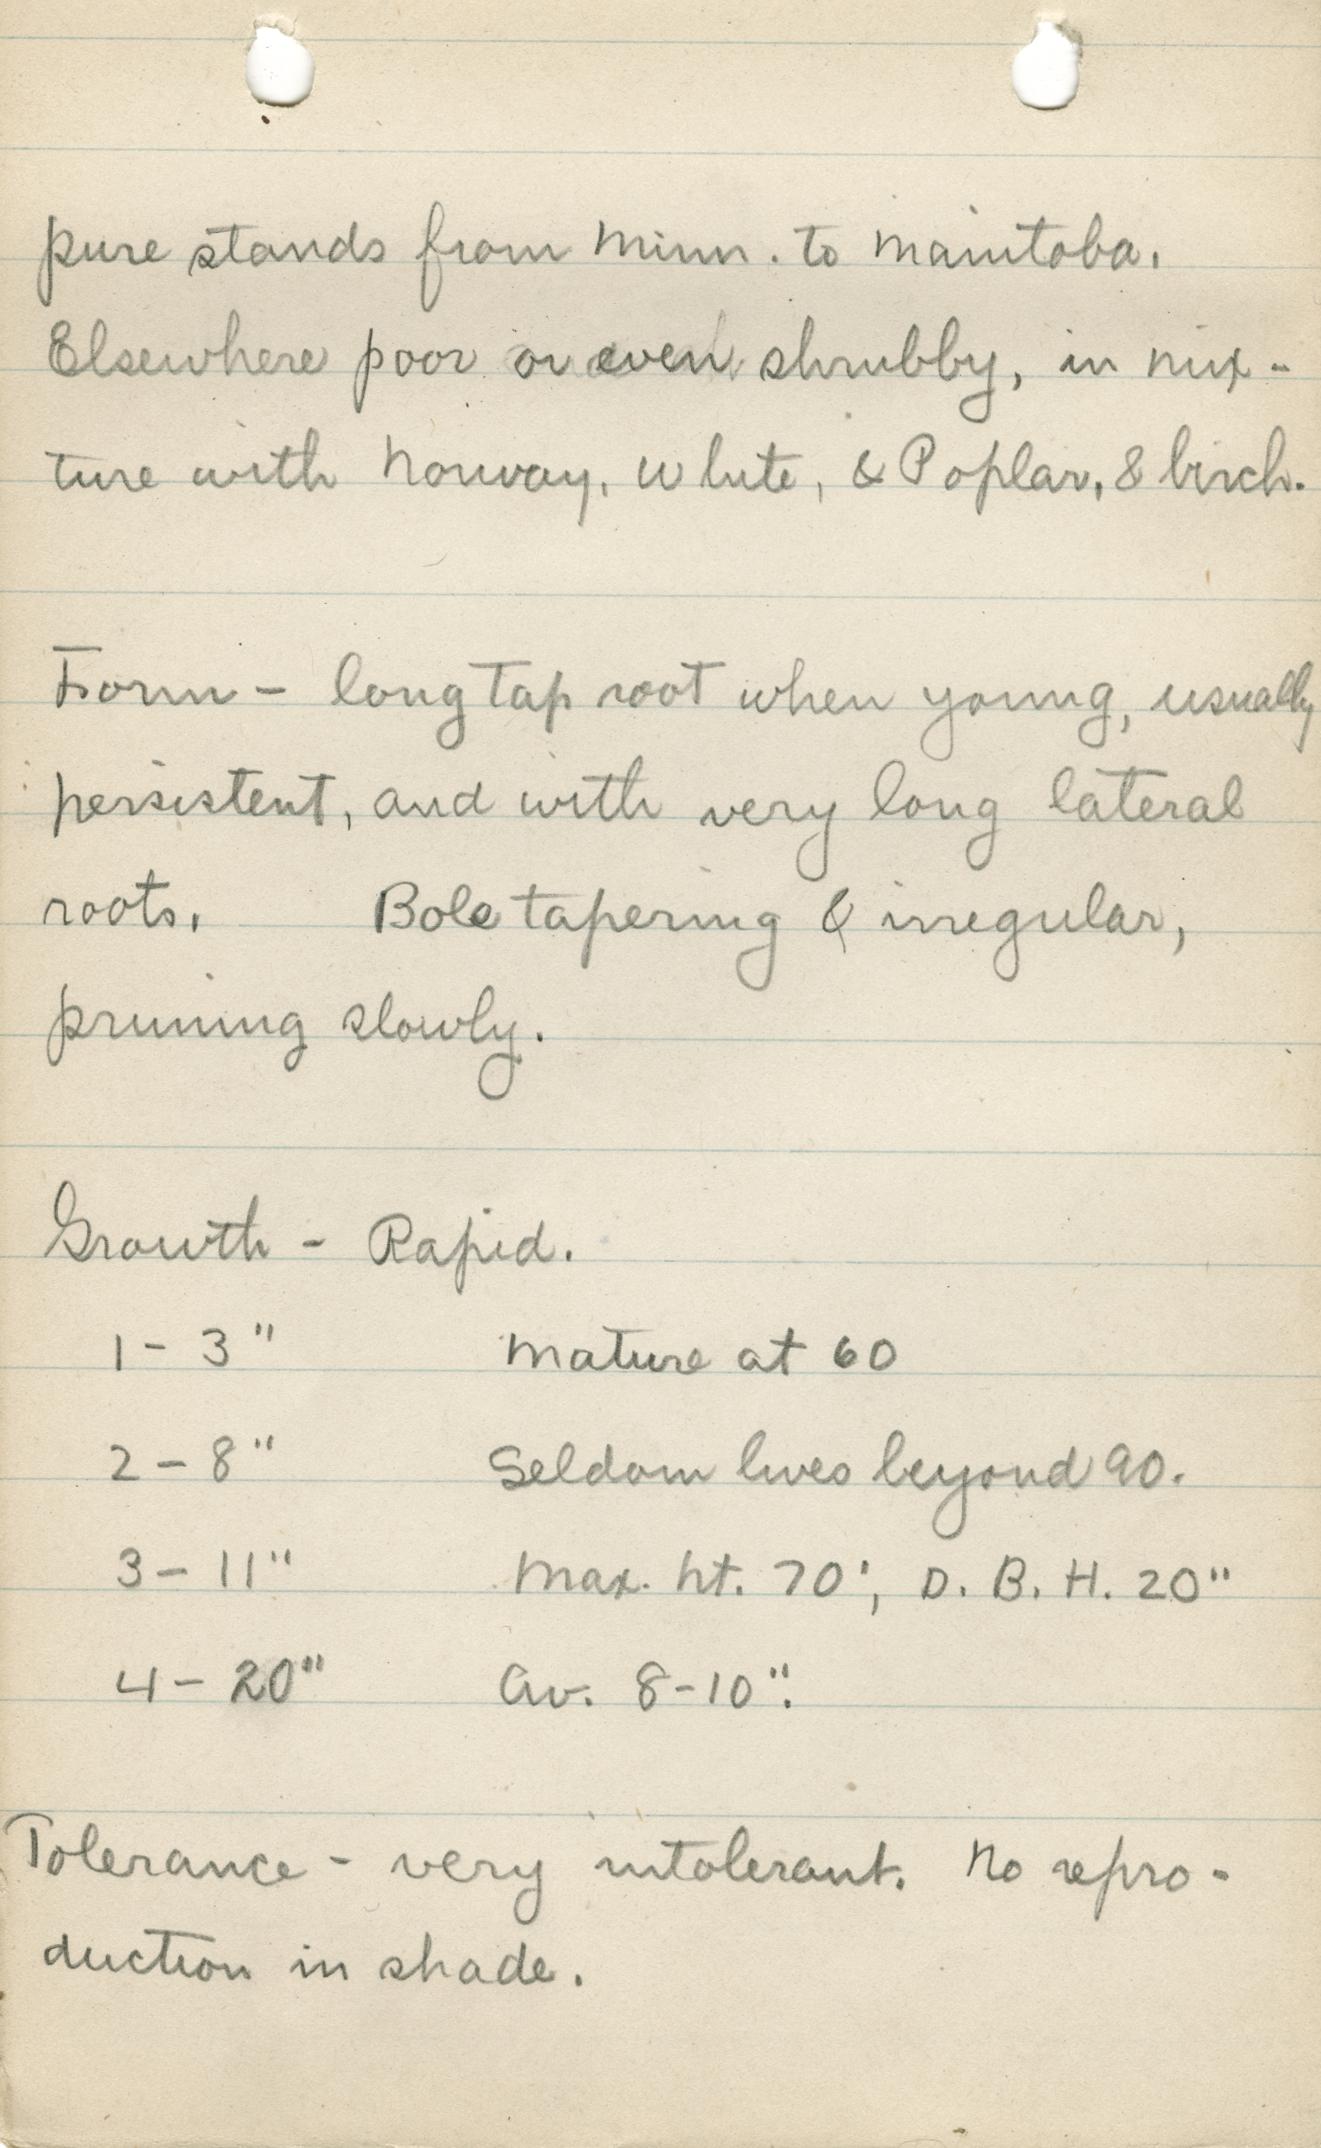 pure stands from Minn. to Manitoba.
Elsewhere poor or even shrubby, in mix-
ture with Norway, White, & Poplar, & birch.
Form - long tap root when young, usually
persistent, and with very long lateral
roots. Bole tapering & irregular,
pruning slowly.
Growth - Rapid.
1 - 3" Mature at 60
2 - 8" Seldom lives beyond 90.
3 - 11" Max. ht. 70', D. B. H. 20"
4 - 20" Av. 8-10".
Tolerance - very intolerant. No repro-
duction in shade.